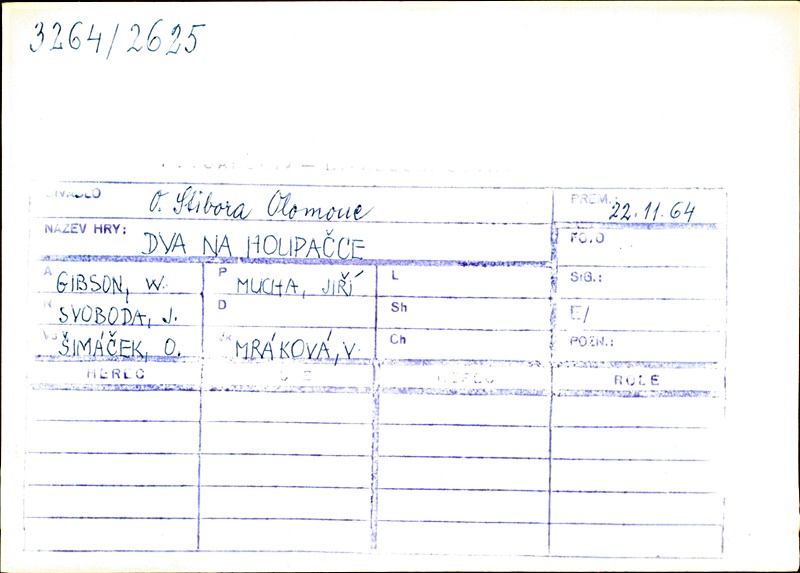 3264/2625
DIVADLO O. Stibora Olomouc PREM.: 22.11.64
NÁZEV HRY: DVA NA HOUPAČCE FOTO
A GIBSON, W. P MUCHA, JIŘÍ L SIG.:
R SVOBODA, J. D Sh E/
ŠIMÁČEK, O. MRÁKOVÁ, V. Ch POZN.:
HEREC HEREC ROLE